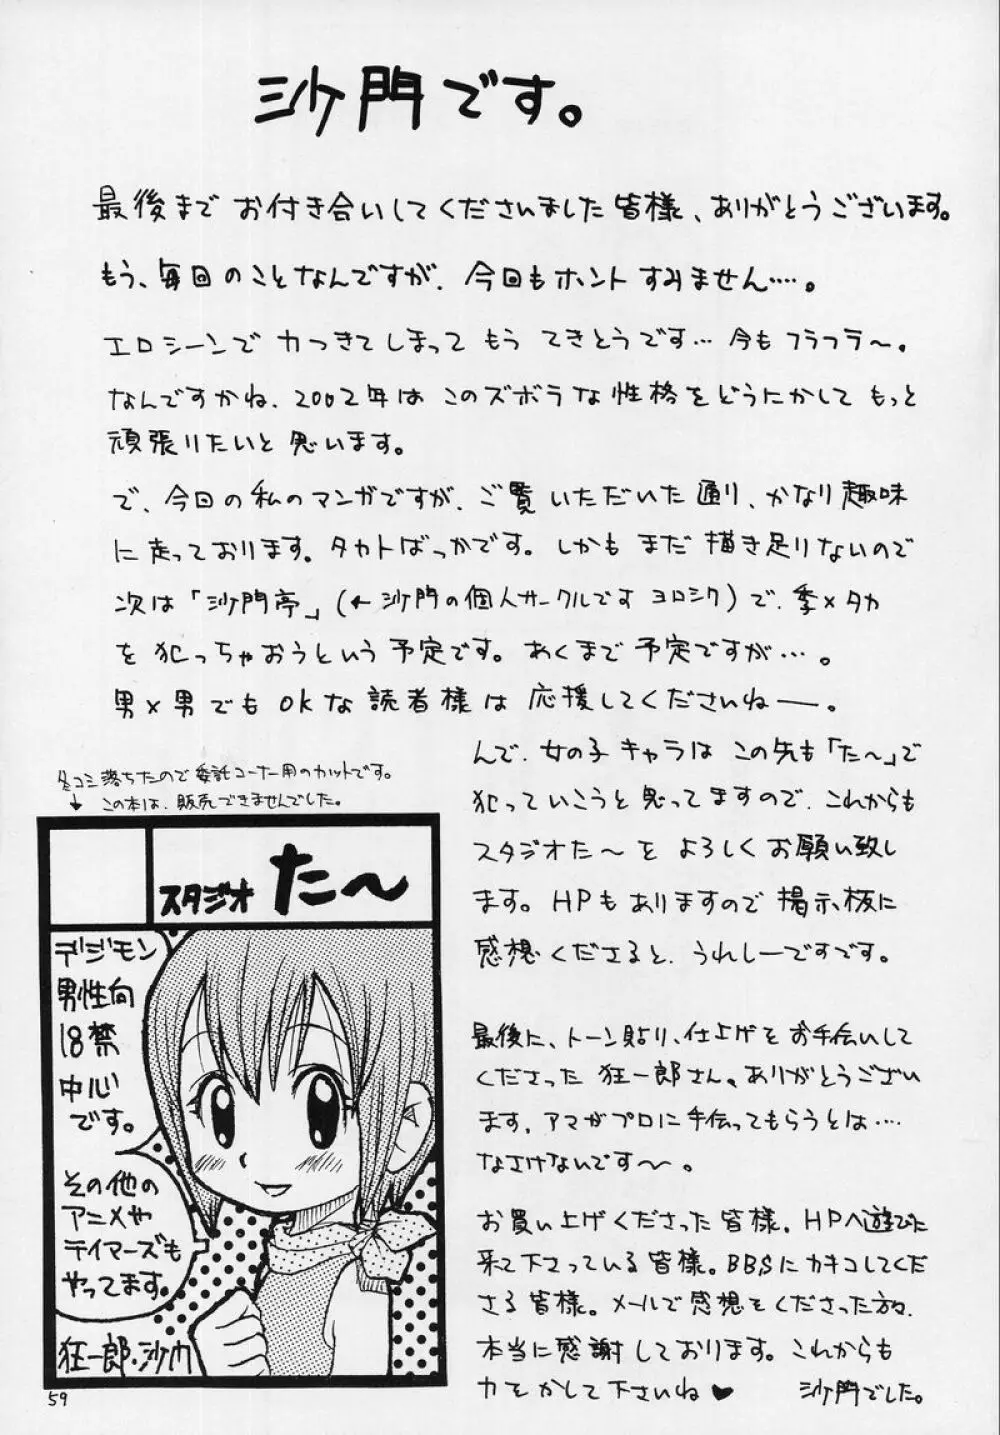 沙門です。
最後まで お付き合いしてくださいました皆様、ありがとうございます。
もう、毎回のことなんですが、今回もホント すみません……。
エロシーンで力つきてしまって もう てきとうです… 今も フラフラ〜。
なんですかね、2002年は このズボラな性格をどうにかして もっと
頑張りたいと思います。
で、今回の私のマンガですが、ご覧いただいた通り、かなり趣味
に走っております。タカトばっかです。しかも まだ 描き足りないので
次は「沙門亭」(←沙門の個人サークルです ヨロシク)で、季×タカ
を犯っちゃおうという予定です。あくまで予定ですが…。
男×男でもOKな読者様は 応援してくださいねー。
んで、女の子キャラは この先も「た〜」で
犯っていこうと思ってますので、これからも
スタジオた〜を よろしくお願い致し
ます。HPもありますので掲示板に
感想くださると、うれしーですです。
最後に、トーン貼り、仕上げをお手伝いして
くださった 狂一郎さん。ありがとうござい
ます。アマがプロに手伝ってもらうとは……
なさけないです〜。
お買い上げくださった皆様。HPへ遊びに
来て下さっている皆様。BBSにカキコしてくだ
さる皆様。メールで感想をくださった方々、
本当に感謝しております。これからも
力をかして下さいね♥ 沙門でした。
冬コミ落ちたので委託コーナー用のカットです。
↓この本は、販売できませんでした。
スタジオ た〜
デジモン
男性向
18禁
中心
です。
その他の
アニメや
テイマーズも
やってます。
狂一郎・沙門
59